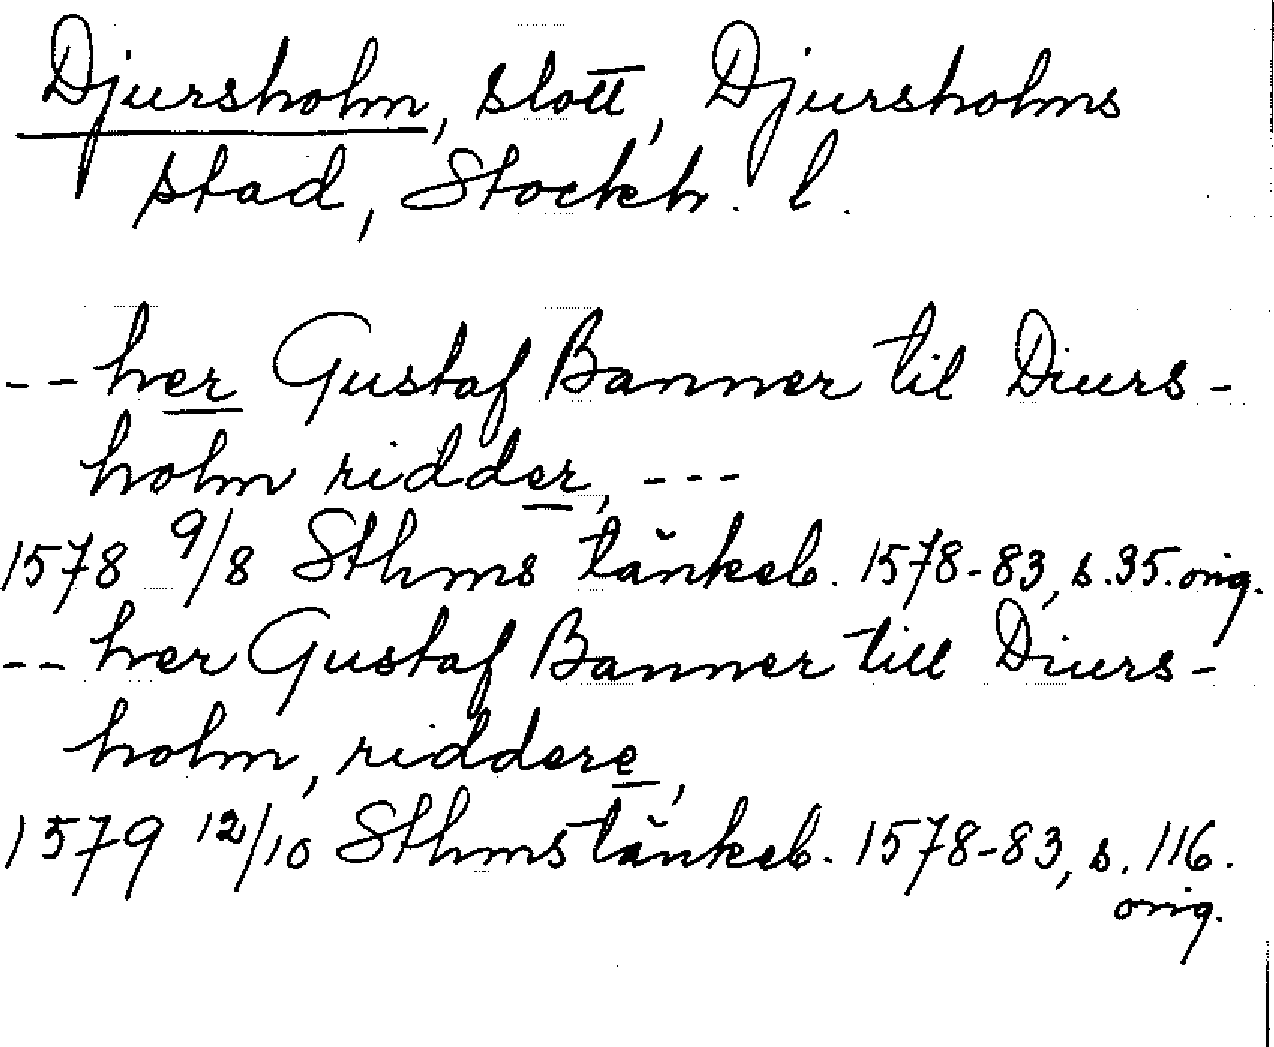 Djursholm, slott, Djursholms
stad, Stockh. l.
-- her Gustaf Banner til Diurs-
holm ridder, ---
1578 9/8 Sthms tänkeb. 1578-83, s. 35. orig.
-- her Gustaf Banner till Diurs-
holm, riddere,
1579 12/10 Sthms tänkeb. 1578-83, s. 116.
orig.